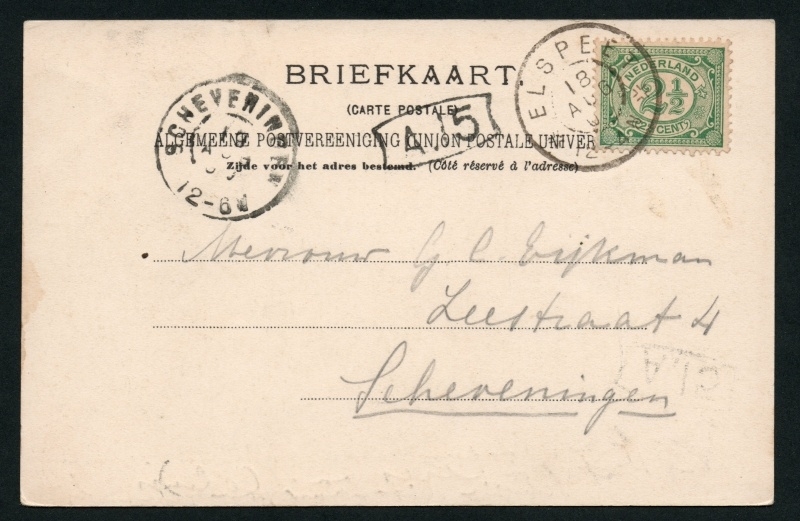 BRIEFKAART.
(CARTE POSTALE)
ALGEMEENE POSTVEREENIGING (UNION POSTALE UNIVER
Zijde voor het adres bestemd. (Côté réservé à l'adresse)
SCHEVENINGEN
12-6N
A 5
ELSPEE
18
AUG
12
NEDERLAND
2½
CENT
Mevrouw G. C. Eijkman
Zeestraat 4
Scheveningen